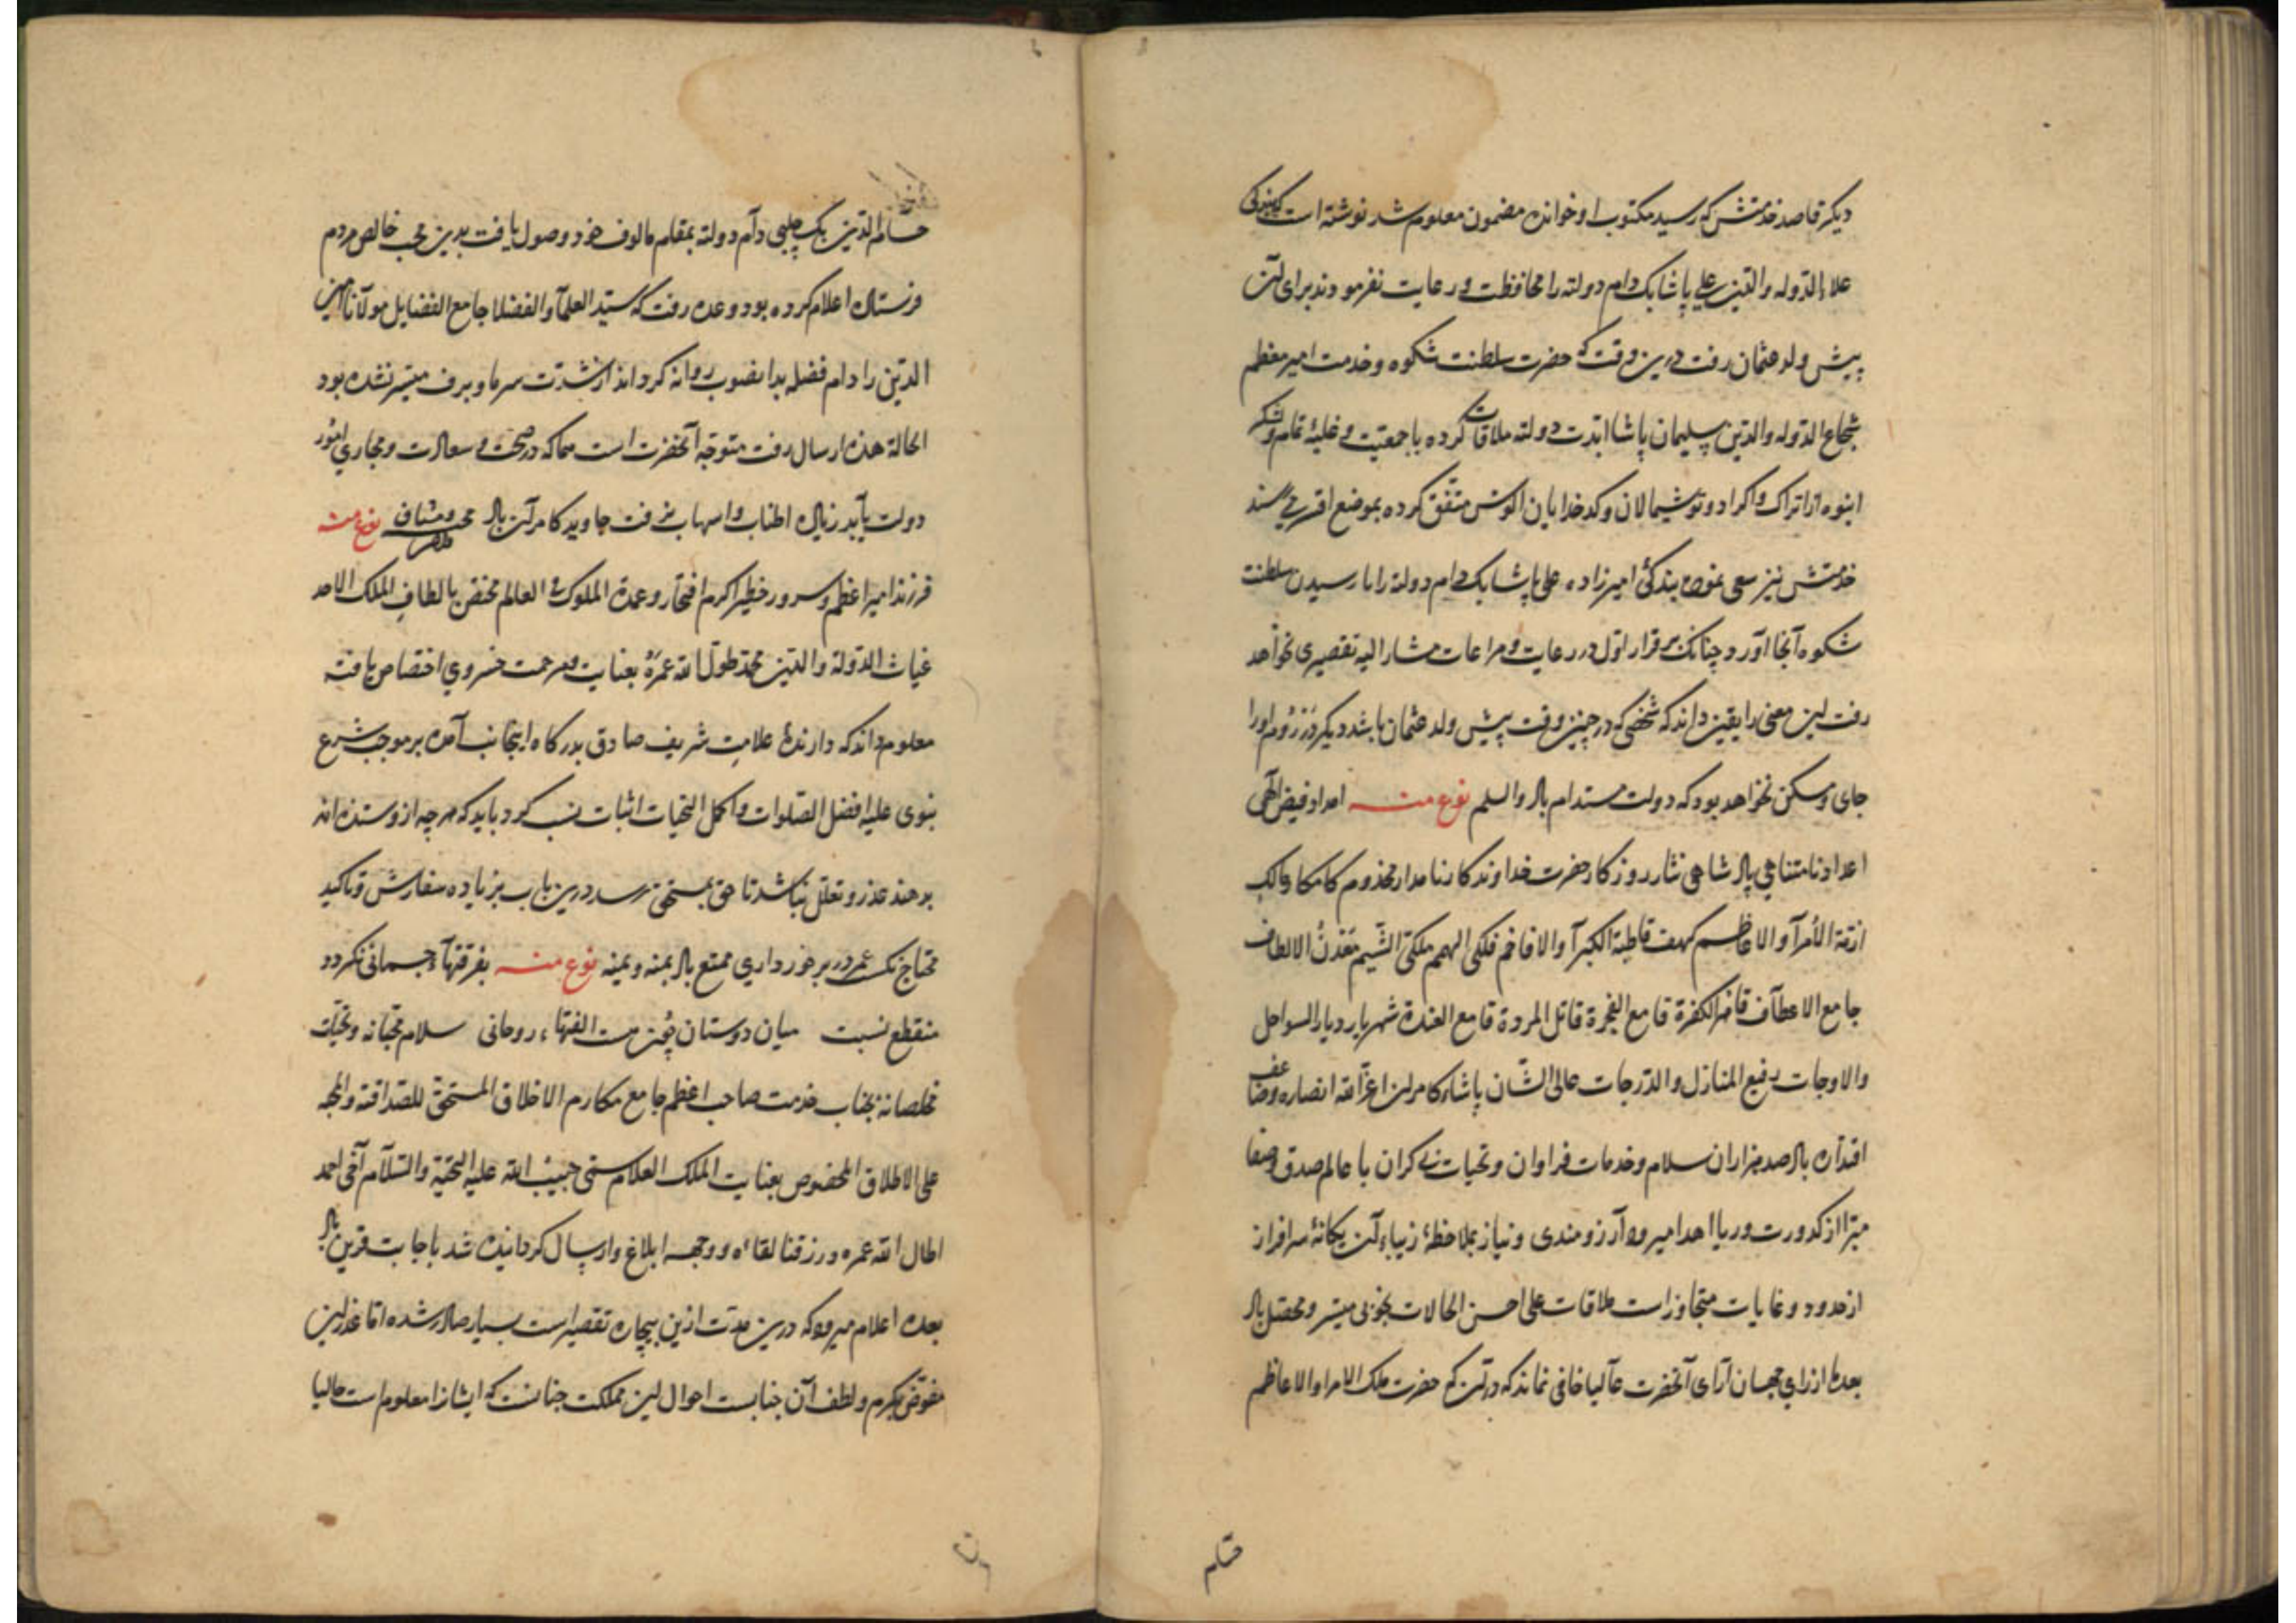 دیکر قاصد خدمتش که رسید مکتوب او خوانده مضمون معلوم شد نوشته است که بندکی
علاء الدوله والدین علی پاشا بک دام دولته را محافظت و رعایت نفرمودند برای آن
پیش ولد عثمان رفت درین وقت که حضرت سلطنت شکوه و خدمت امیر معظم
شجاع الدوله والدین سلیمان پاشا ابدت دولته ملاقات کرده با جمعیت و غلبهٔ تمام و لشکر
انبوه از اتراک و اکراد و توشیمالان و کدخدایان الوس متفق کرده بموضع
خدمتش نیز سعی نموده بندکیٔ امیرزاده علی پاشا بک دام دولته را با رسیدن سلطنت
شکوه آنجا آورد چنانک بر قرار اول در رعایت و مراعات مشار الیه تقصیری نخواهد
رفت این معنی را یقین داند که شخصی که در چنین وقت پیش ولد عثمان باشد دیکر در روم او را
جای و مسکن نخواهد بود که دولت مستدام باد والسلم نوع منه امداد فیض الهی
اعداد نامتناهی پادشاهی نثار روزکار حضرت خداوندکار نامدار مخذوم کامکار مالک
ازمة الأمرآ والاعاظم کهف قاطبة الکبرآ والافاخم فلکی الهمم ملکی الشیم معدن الالطاف
جامع الاعطآف قاهر الکفرة قامع الفجرة قاتل المردة قامع العندة شهریار دیار السواحل
والاوجات رفیع المنازل والدرجات عالی الشان پاشاء کامران اعز الله انصاره وضاعف
اقتداره باد صد هزاران سلام و خدمات فراوان و تحیات بی کران با عالم صدق و صفا
مبرا از کدورت و ریا اهدا میرود آرزومندی و نیاز بملاحظهٔ زیباء آن یکانهٔ سرافراز
از حدود و غایات متجاوز است ملاقات علی احسن الحالات بخوبی میسر و محصل باد
بعدها از رای جهان آرای آنحضرت عالیا خافی نماند که درآن که حضرت ملک الامرا والاعاظم
حسام
حسام الدین بک چلبی دام دولته بمقام مالوف خود وصول یافت بدین محب خالص مردم
فرستاده اعلام کرده بود وعده رفت که سید العلمآ والفضلا جامع الفضایل مولانا امین
الدین را دام فضله بدانصوب روانه کرداند از شدت سرما و برف میسر نشده بود
الحالة هذه ارسال رفت متوقع آنحضرت است که در صحت و سعادت و مجاری امور
دولت یابد زیاده اطناب و اسهاب نرفت جاوید کامران باد محب و مشتاق نوع منه
فرزند امیر اعظم و سرور خطیر اکرم افتخار و عمدة الملوک فی العالم مختص بالطاف الملک الاحد
غیاث الدولة والدین محمد طول الله عمره بعنایت و مرحمت خسروی اختصاص یافته
معلوم داند که دارندهٔ علامت شریف صادق بدرکاه اینجانب آمده بر موجب شرع
نبوی علیه افضل الصلوات واکمل التحیات اثبات نسب کرد باید که هرچه ازو ستده اند
بدهند عذر و تعلل نباشد تا حق بمستحق رسد درین باب بزیاده سفارش و تاکید
محتاج نکند عمر در برخورداری ممتع باد بمنه ویمنه نوع منه بفرقتهآء جسمانی نکردد
منقطع نسبت میان دوستان چون هست الفتهاء روحانی سلام محبانه و تحیات
مخلصانه بجناب خدمت صاحب اعظم جامع مکارم الاخلاق المستحق للصداقة والمحبة
علی الاطلاق المخصوص بعنایت الملک العلام سمی حبیب الله علیه التحیة والسلام آخی احمد
اطال الله عمره ورزقنا لقاءه ووجهه ابلاغ و ارسال کردانیده شد باجابت قرین باد
بعده اعلام میرود که درین مدت ازین بیچاره تقصیرات بسیار صادر شده اما عذر این
مفوض بکرم و لطف آن جنابست احوال این مملکت چنانست که ایشانرا معلوم است حالیا